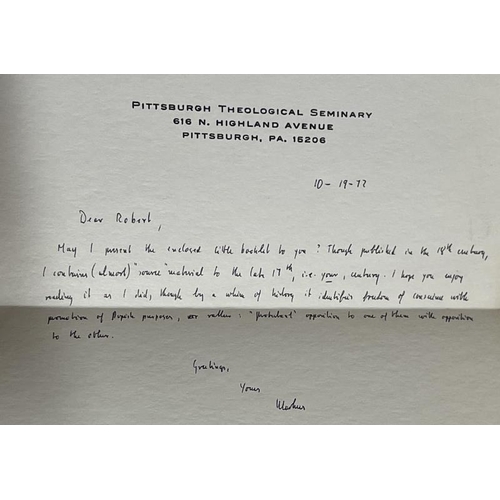 PITTSBURGH THEOLOGICAL SEMINARY
616 N. HIGHLAND AVENUE
PITTSBURGH, PA. 15206
10-19-77
Dear Robert,
May I present the enclosed little booklet to you? Though published in the 18th century,
I contains (almost) "source" material to the late 17th, i.e. your, century. I hope you enjoy
reading it as I did, though by a whim of history it identifies freedom of conscience with
promotion of Popish purposes, or rather: "Protestant" opposition to one of them with opposition
to the other.
Greetings,
Yours
Markus